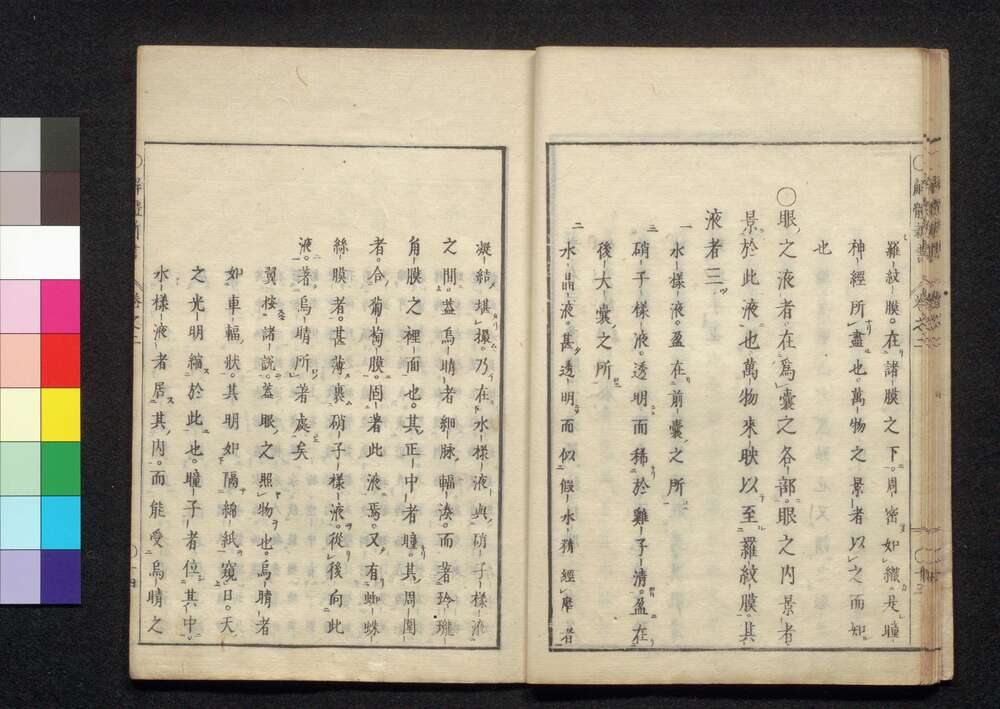 羅紋膜。在諸膜之下。周密如織。是瞳
神經所盡也。萬物之景者以之而知
也
〇眼之液者。在為囊之各部。眼之内景者
景於此液也萬物來映以至羅紋膜。其
液者三
一水樣液。盈在前囊之所
三硝子樣液。透明而稀於雞子清。盈在
後大囊之所
二水晶液。甚透明而似假水猜經摩者
凝結堪撮。乃在水樣液與硝子樣液
之間。蓋烏睛者細脉輻湊。而著玲瓏
角膜之裡面也。其正中者瞳。其周圍
者。合葡萄膜。固著此液焉。又有蜘蛛
絲膜者。甚薄裹硝子樣液。從後向此
液。著烏睛所著處矣
翼按諸説。蓋眼之照物也。烏睛者
如車輻狀。其明如隔綿紙窺日。天
之光明縮於此也。瞳子者位其中。
水樣液者居其内。而能受烏睛之
解體新書
卷之二
〇十四